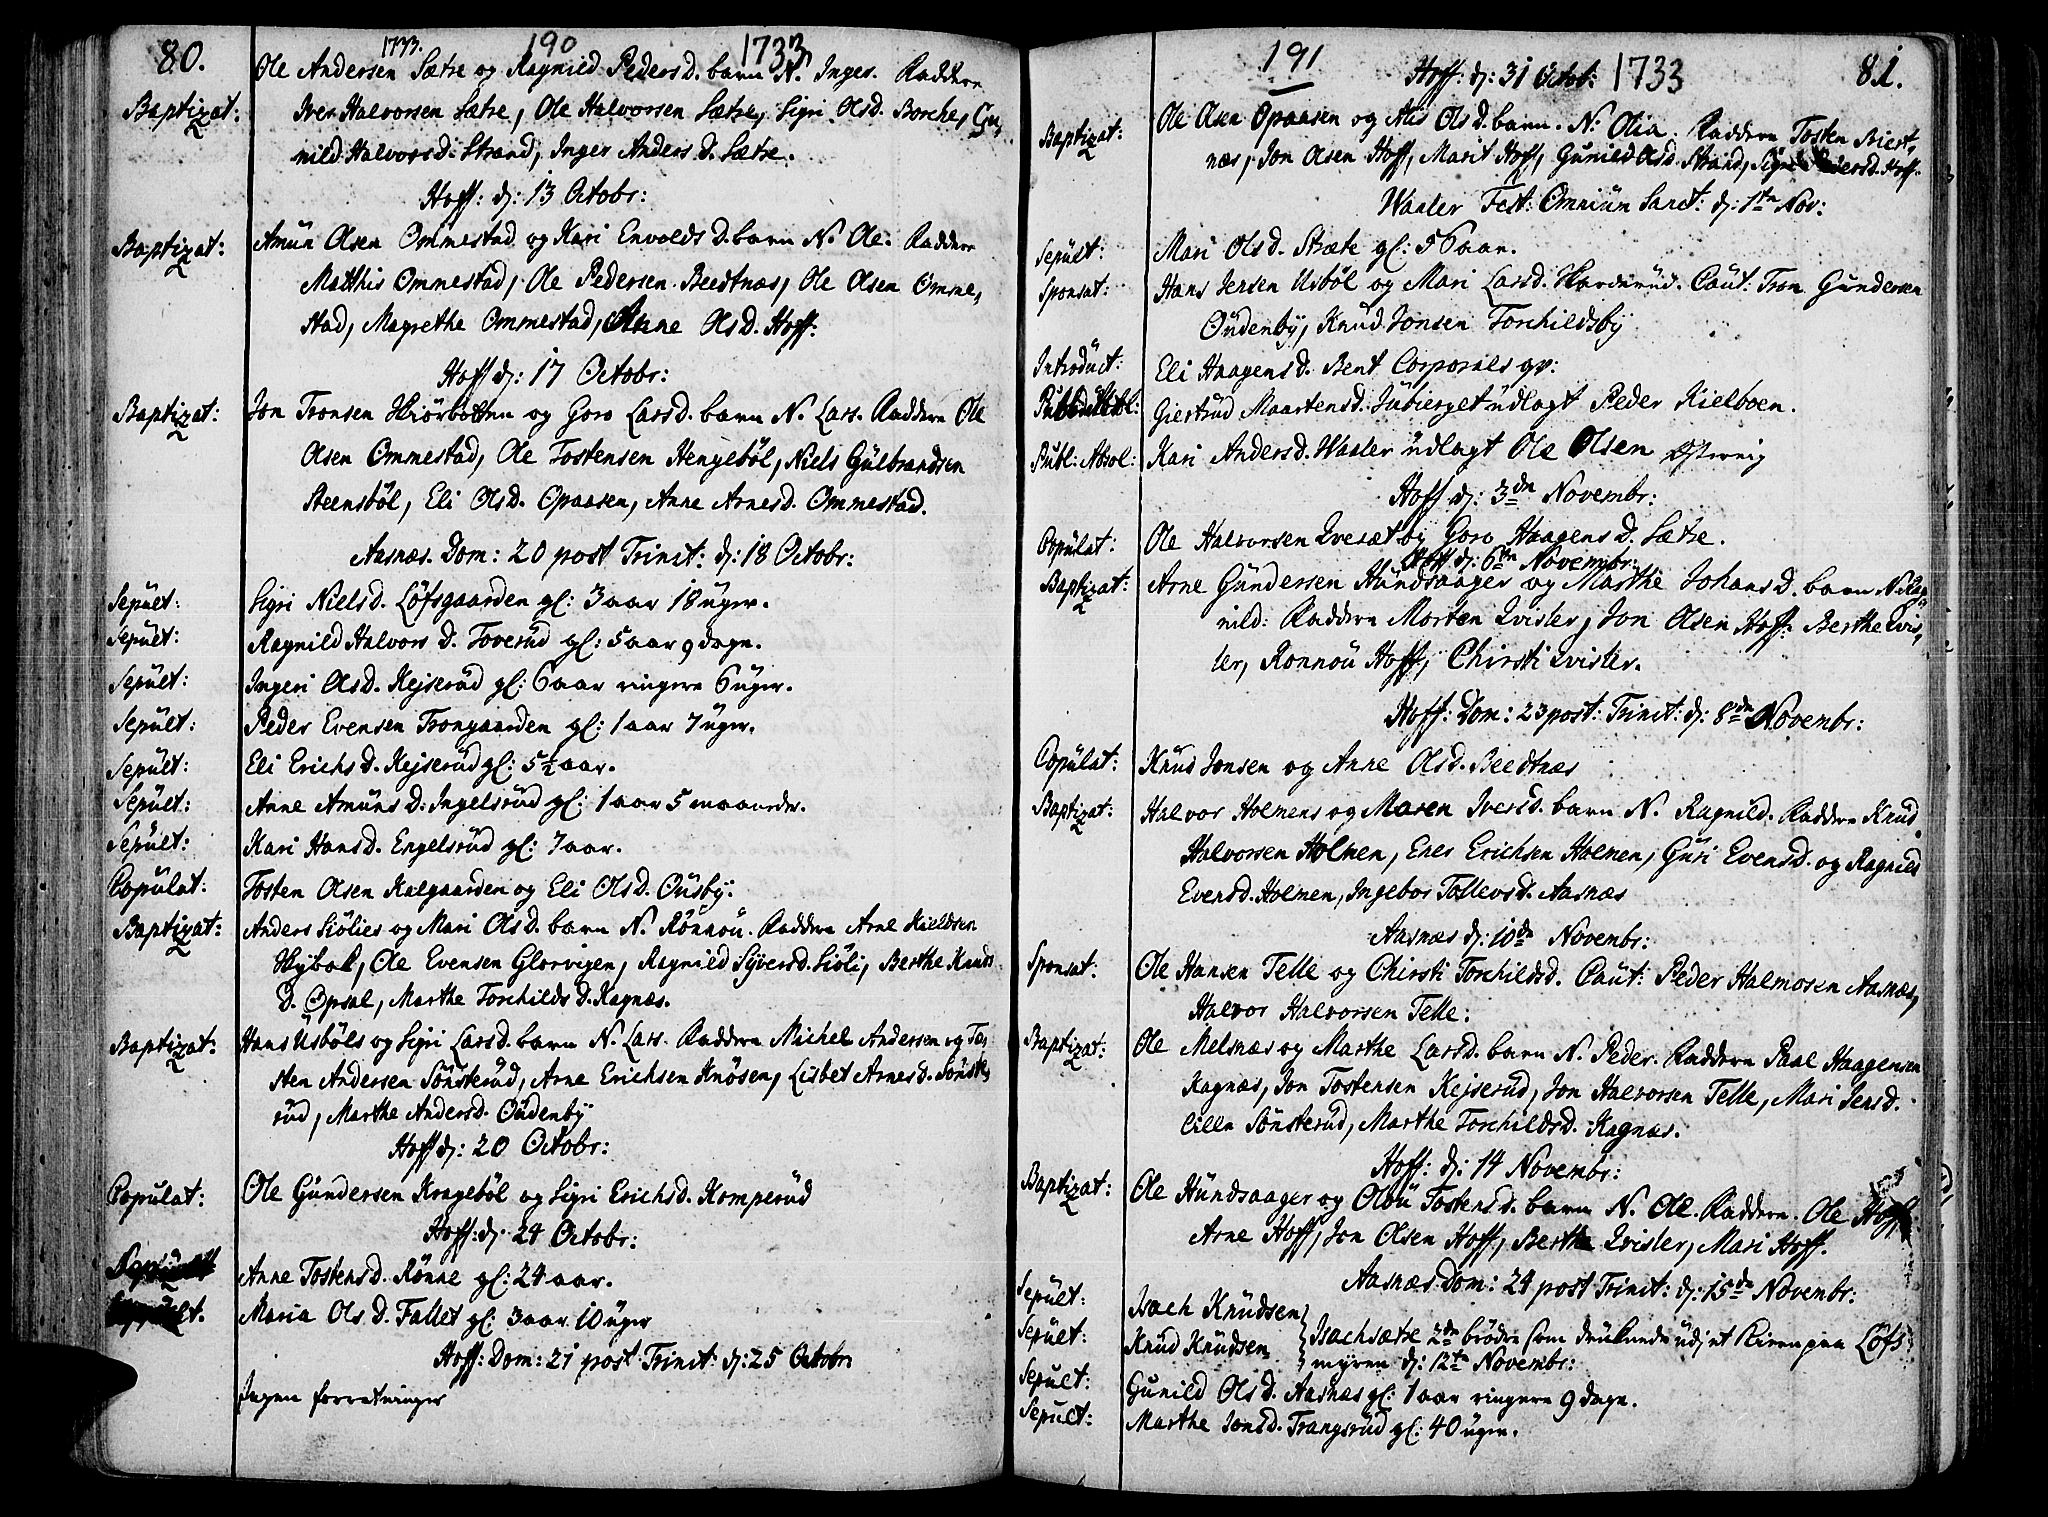 80. 1733. 190 1733
Ole Andersen Sætre og Ragnild Pedersd. barn N. Inger. Faddere
Baptizat: Iver Halvorsen Sætre, Ole Halvorsen Sætre, Sigri Olsd. Borche, Gu,
nild Halvorsd. Strand, Inger Anders D. Sætre.
Hoff: d: 13 Octobr:
Baptizat: Amun Olsen Ommestad og Kari Envolds D. barn N. Ole. Faddere
Matthis Ommestad, Ole Pedersen Beedtnæs, Ole Olsen Omme,
stad, Magrethe Ommestad, Anne Olsd. Hoff.
Hoff d: 17 Octobr:
Baptizat: Jon Tronsen Skiörbotten og Goro Larsd. barn N. Lars. Faddere Ole
Olsen Ommestad, Ole Tostensen Hengeböl, Niels Gülbrandsen
Steensböl, Eli Olsd. Opaasen, Anne Arnesd. Ommestad.
Aasnæs. Dom: 20 post Trinit: d: 18 Octobr:
Sepült: Sigri Nielsd. Löfsgaarden gl: 3 aar 18 uger.
Sepült: Ragnild Halvors D. Toverüd gl: 5 aar 9 dage.
Sepült: Ingeri Olsd. Kejserüd gl: 6 aar ringere 6 uger.
Sepült: Peder Evensen Trongaarden gl: 1 aar 7 uger.
Sepült: Eli Erichsd. Kejserüd gl: 5½ aar.
Sepült: Anne Amüns D. Ingelsrüd gl: 1 aar 5 maaneder.
Sepült: Kari Hansd. Engelsrüd gl: 7 aar.
Copülat: Tosten Olsen Kalgaarden og Eli Olsd. Oüsby.
Baptizat: Anders Siölies og Mari Olsd. barn N. Rönnoü. Faddere Arne Kieldsen
Hybol, Ole Evensen Glorvigen, Ragnild Syversd. Siöli, Berthe Knuds
D. Opsal, Marthe Torchilds D. Kagnæs.
Baptizat: Hans Usböls og Sigri Larsd. barn N. Lars. Faddere Michel Andersen og To,
sten Andersen Sönsterüd, Arne Erichsen Knösen, Lisbet Arnesd. Sönste,
rüd, Marthe Andersd. Oüdenby
Hoff d: 20 Octobr:
Copulat: Ole Gündersen Krageböl og Sigri Erichsd. Komperüd
Hoff: d: 24 Octobr:
Anne Tostensd. Rönne gl: 24 aar.
Maria Ols D. Fallet gl: 3 aar 10 uger
Hoff: Dom: 21 post Trinit: d: 25 Octobr:
Ingen forretninger
191 Hoff: d: 31 Octob: 1733 81.
Baptizat: Ole Olsen Opaasen og Alis Olsd. barn N. Olia. Faddere Tosten Biert,
næs, Jon Olsen Hoff, Marit Hoff, Gunild Olsd. Strand, Signe Pedersd. Hoff.
Waaler Fest: Omniün Sanct: d: 1ste Nov:
Sepült: Mari Olsd. Stræte gl: 56 aar.
Sponsat: Hans Jensen Usböl og Mari Larsd. Harderüd. Caut. Tron Gundersen
Oüdenby, Knud Jonsen Torchildsby
Introdüct: Eli Haagensd. Bent Corporals qv:
Giertrüd Maartensd. Jübierget üdlagt Peder Kielboen.
Publ: Absol: Kari Andersd. Waaler üdlagt Ole Olsen Østervig
Hoff d: 3dn Novembr:
Copülat: Ole Halvorsen Qvesæt og Goro Haagens D. Sætre.
Hoff d: 6tn Novembr:
Baptizat: Arne Gündersen Hündsaager og Marthe Johans D. barn N. Rag,
nild: Faddere Morten Qvisler, Jon Olsen Hoff: Berthe Qvis,
ler, Ronnoü Hoff, Chirsti Qvisler.
Hoff: Dom: 23 post: Trinit: d: 8dn Novembr:
Copülat: Knud Jonsen og Anne Olsd. Beedtnæs
Baptizat: Halvor Holmens og Maren Iversd. barn N. Ragnild. Faddere Knud
Halvorsen Holmen, Ener Erichsen Holmen, Guri Evensd. og Ragnild
Evensd. Holmen, Ingebor Tollevsd. Aasnæs
Aasnæs d: 10dn Novembr:
Sponsat: Ole Hansen Telle og Chirsti Torchildsd. Caut: Peder Halmosen Aasnæs,
Halvor Halvorsen Telle:
Baptizat: Ole Melsnæs og Marthe Larsd. barn N. Peder. Faddere Paal Haagensen
Kagnæs, Jon Tostensen Kejserüd, Jon Halvorsen Telle, Mari Jensd.
lille Sönsterüd, Marthe Torchildsd. Kagnæs.
Hoff: d: 14 Novembr:
Baptizat: Ole Hündsaager og Oloü Tostensd. barn N. Ole. Faddere Ole Hoff
Arne Hoff, Jon Olsen Hoff, Berthe Qvisler, Mari Hoff.
Aasnæs Dom: 24 post Trinit: d: 15dn Novembr:
Sepült: Isach Knüdsen
Sepült: Knud Knüdsen } Isachsætre 2de brödre som druknede üdj et Kiern paa Löfs
myren d: 12te Novembr:
Sepült: Gunild Olsd. Aasnæs gl: 1 aar ringere 9 dage.
Sepült: Marthe Jonsd. Trangsrüd gl: 40 uger.